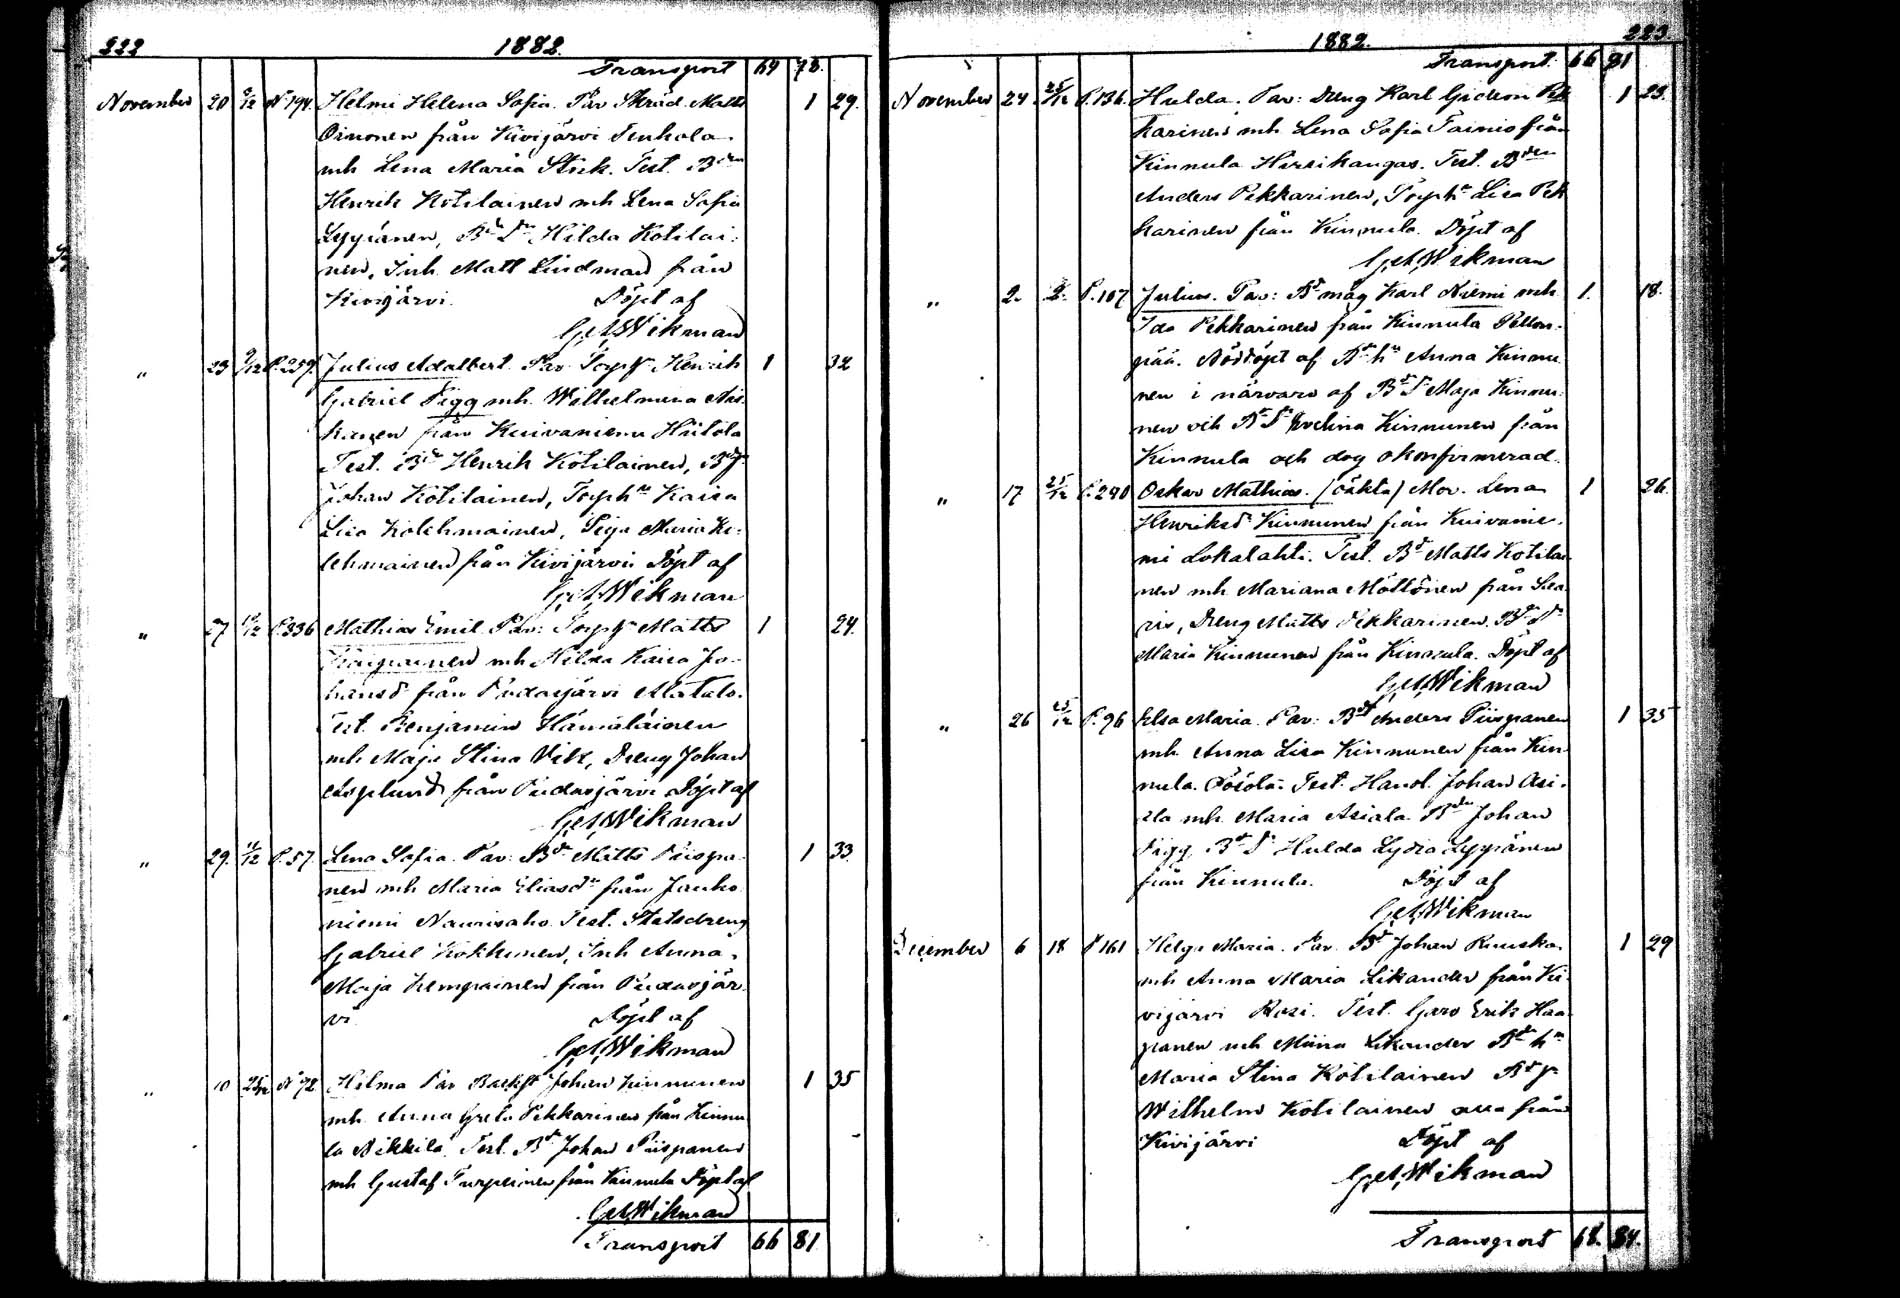 222 1882.
Transport 64 78.
November 20 9/12 N 194. Helmi Helena Sofia. Par Skräd. Matts 1 29.
Oinonen från Kivijärvi Tenhola
mh Lena Maria Stick. Test. Bden
Henrik Kotilainen mh Lena Sofia
Lyyiänen, Bde Dn Hilda Kotilai:
nen, Inh. Matt Lindman från
Kivijärvi. Döpt af
G. A. Wikman
„ 23 9/12 P. 259. Julius Adalbert. Par Torp. Henrik 1 32
Gabriel Pigg mh. Wilhelmina
kanen från Kuivaniemi Hiitola
Test. Bde Henrik Kotilainen, Bdeg
Johan Kotilainen, Torphu Kaisa
Lisa Kolehmainen, Piga Maria Ko-
lehmainen från Kivijärvi Döpt af
G. A. Wikman
„ 27 /12 P. 336 Mathias Emil. Par: Torp. Matts 1 24.
mh Hilda Kaisa Jo-
hansd från Pudasjärvi Alatalo.
Test. Benjamin Hämäläinen
mh Maja Stina Vilk, Dreng Johan
Asplund från Pudasjärvi Döpt af
G. A. Wikman
„ 29. 11/12 P. 57. Lena Sofia. Par: Bde Matts Piispa- 1 33.
nen mh Maria Eliasdr från Jauho
niemi Naurisaho. Test. Statsdreng
Gabriel Kokkinen, Inh Anna
Maja Kempainen från Pudasjär
vi. Döpt af
G. A. Wikman
„ 10 25/12 N 72 Hilma Par Backst Johan Kinnunen 1 35
mh. Anna Greta Pekkarinen från Kinnu
la Nikkilä. Test. Bde Johan Piispanen
mh Gustaf Turpeinen från Kinnula Döpt af
G. A. Wikman
Transport 66 81
1882. 223
Transport. 66 81
November 24. 25/12 P. 136. Hulda. Par: Dreng Karl Gideon Pek 1 23.
karinen mh Lena Sofia Tainio från
Kinnula Hirsikangas. Test. Bden
Anders Pekkarinen, Torphu Lisa Pek
karinen från Kinnula. Döpt af
G. A. Wikman
„ 2. 2. P. 107 Julius. Par: Bde måg Karl Niemi mh 1. 18.
Ida Pekkarinen från Kinnula Pellon-
pää. Nöddöpt af Bde hu Anna Kinnu
nen i närvaro af Bde D Maja Kinnu-
nen och Bde D Evelina Kinnunen från
Kinnula och dog okonfirmerad.
„ 17 25/12 P. 240 Oskar Mathias. (oäkta) Mor. Lena 1 26.
Henriksdr Kinnunen från Kuivanie-
mi Lokalahti. Test. Bde Matts Kotilai
nen mh Mariana Möttönen från Saa
ris, Dreng Matts Pekkarinen. Bde D
Maria Kinnunen från Kinnula. Döpt af
G. A. Wikman
„ 26 25/12 P. 96 Elsa Maria. Par: Bde Anders Piispanen 1 35
mh. Anna Lisa Kinnunen från Kin
nula. Test. Handl. Johan Asi-
ala mh. Maria Asiala. Bden Johan
Pigg. Bde D. Hulda Lydia Lyyiänen
från Kinnula. Döpt af
G. A. Wikman
December 6 18 P 161 Helga Maria. Par Bd Johan Ruuska 1 29
mh Anna Maria Likander från Ki
vijärvi Rosi. Test. Garv Erik Haa
panen mh Miina Likander Bde hu
Maria Stina Kotilainen Bdeg
Wilhelm Kotilainen alla från
Kivijärvi Döpt af
G. A. Wikman
Transport 68. 84.